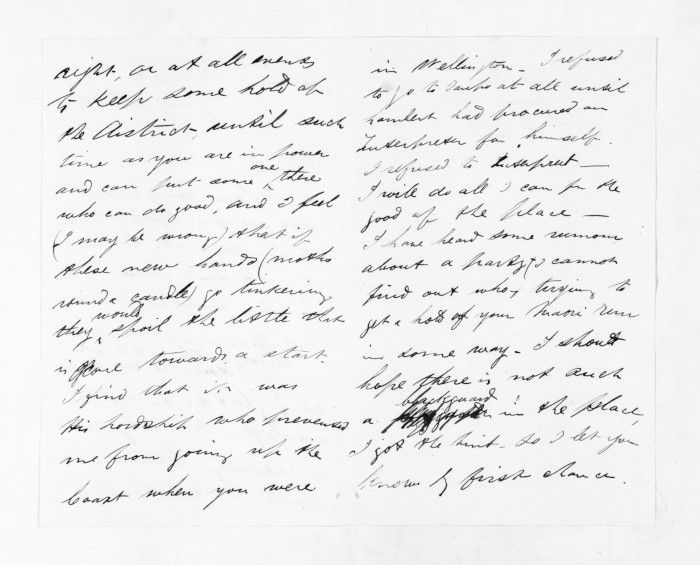 right, or at all events
to keep some hold of
the District, until such
time as you are in power
and can put some one there
who can do good, and I feel
(I may be wrong) that if
these new hands (moths
round a candle) go tinkering
they would spoil the little that
is gone towards a start.
I find that it was
His Lordship who prevented
me from going up the
Coast when you were
in Wellington - I refused
to go to Taupo at all until
Lambert had procured an
Interpreter for himself.
I refused to Interpret -
I will do all I can for the
good of the place -
I have heard some rumour
about a party (I cannot
find out who) trying to
get a hold of your Maori run
in some way - I should
hope there is not such
a blackguard in the place,
I got the hint - so I let you
know by first chance.